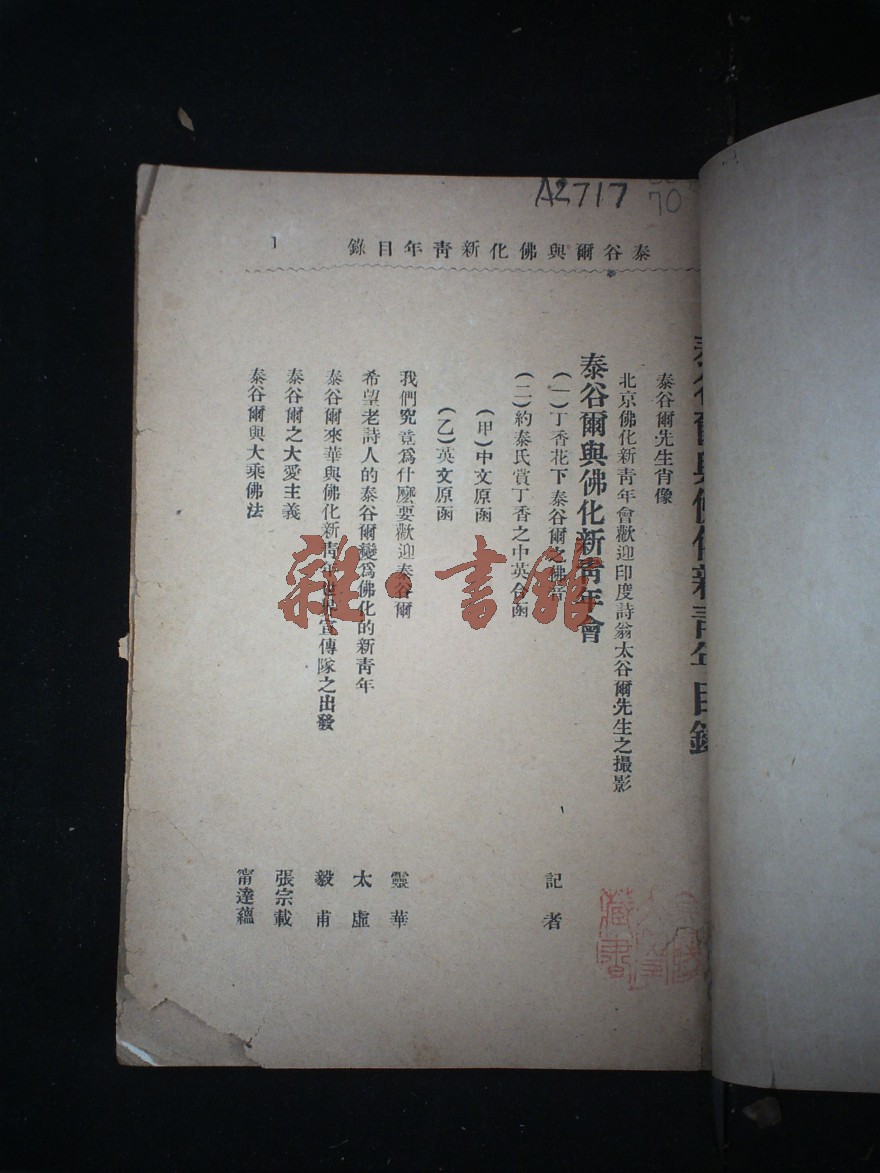 A2717
70
泰谷爾與佛化新靑年目錄 1
泰谷爾與佛化新靑年目錄
泰谷爾先生肖像
北京佛化新靑年會歡迎印度詩翁太谷爾先生之撮影
泰谷爾與佛化新靑年會
(一)丁香花下泰谷爾之佛音 記者
(二)約泰氏賞丁香之中英合函
(甲)中文原函
(乙)英文原函
我們究竟爲什麽要歡迎泰谷爾 靈華
希望老詩人的泰谷爾變爲佛化的新靑年 太虛
泰谷爾來華與佛化新靑年世界宣傳隊之出發 毅甫
泰谷爾之大愛主義 張宗載
泰谷爾與大乘佛法 甯達蘊
雜·書館
藏書